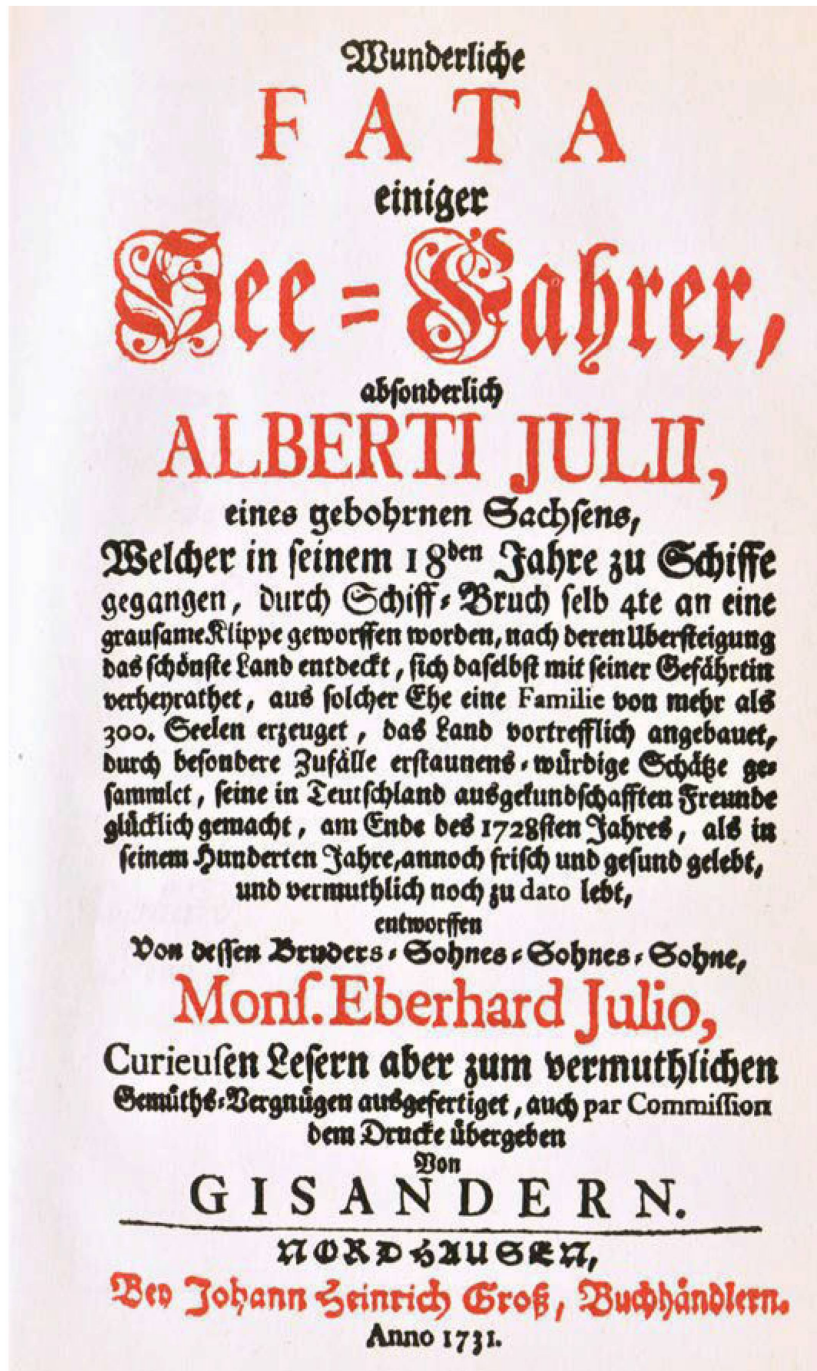 Wunderliche
FATA
einiger
See=Fahrer,
absonderlich
ALBERTI JULII,
eines gebohrnen Sachsens,
Welcher in seinem 18den Jahre zu Schiffe
gegangen, durch Schiff=Bruch selb 4te an eine
grausame Klippe geworffen worden, nach deren Ubersteigung
das schönste Land entdeckt, sich daselbst mit seiner Gefährtin
verheyrathet, aus solcher Ehe eine Familie von mehr als
300. Seelen erzeuget, das Land vortrefflich angebauet,
durch besondere Zufälle erstaunens=würdige Schätze ge=
sammlet, seine in Teutschland ausgekundschafften Freunde
glücklich gemacht, am Ende des 1728sten Jahres, als in
seinem Hunderten Jahre, annoch frisch und gesund gelebt,
und vermuthlich noch zu dato lebt,
entworffen
Von dessen Bruders=Sohnes=Sohnes=Sohne,
Monſ. Eberhard Julio,
Curieusen Lesern aber zum vermuthlichen
Gemüths=Vergnügen ausgefertiget, auch par Commission
dem Drucke übergeben
Von
GISANDERN.
NORDHAUSEN,
Bey Johann Heinrich Groß, Buchhändlern.
Anno 1731.